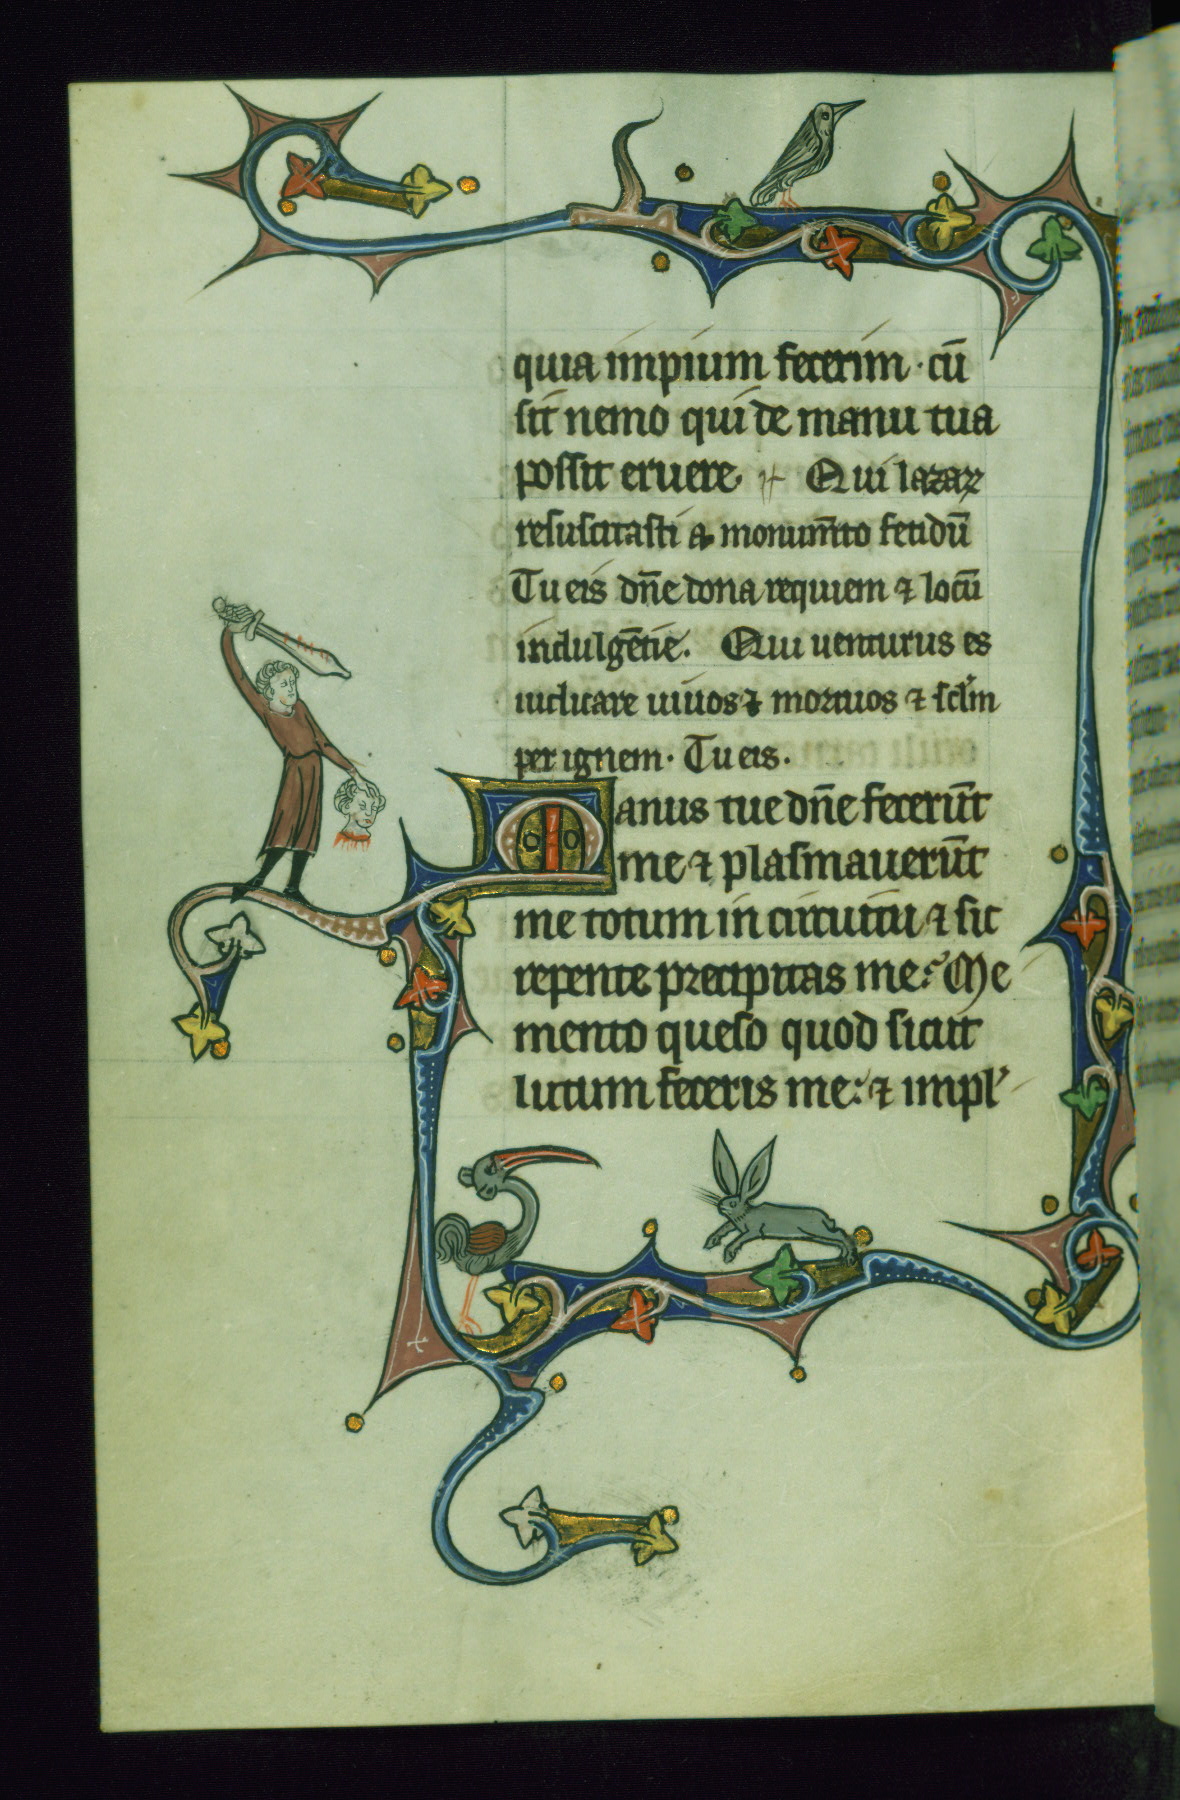 quia impium fecerim · cū
sit nemo qui de manu tua
possit eruere Qui lazaꝝ
resuscitasti a monumēto fetidū
Tu eis dn̄e dona requiem ⁊ locū
indulgētie. Qui uenturus es
iudicare uiuos ⁊ mortuos ⁊ sc̄lm
per ignem · Tu eis.
Manus tue dn̄e fecerūt
me ⁊ plasmauerūt
me totum in circuitu ⁊ sic
repente precipitas me: Me
mento queso quod sicut
lutum feceris me: ⁊ impl'